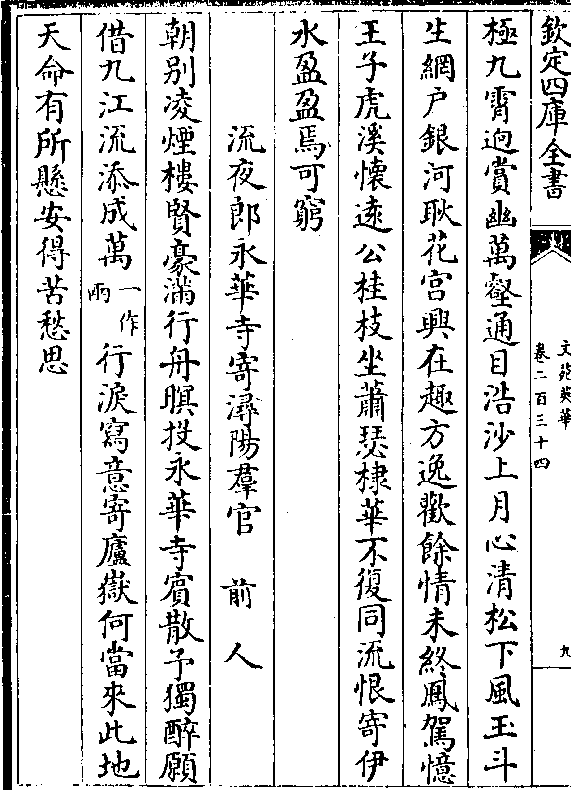 欽定四庫全書
文苑英華
卷二百三十四
九
極九霄迥賞幽萬壑通目浩沙上月心清松下風玉斗
生網户銀河耿花宫興在趣方逸歡餘情未終鳳駕憶
王子虎溪懷逺公桂枝坐蕭瑟棣華不復同流恨寄伊
水盈盈焉可窮
流夜郎永華寺寄潯陽羣官　前人
朝别凌煙樓賢豪滿行舟暝投永華寺賓散予獨醉願
借九江流添成萬一作兩行淚寫意寄廬嶽何當來此地
天命有所懸安得苦愁思